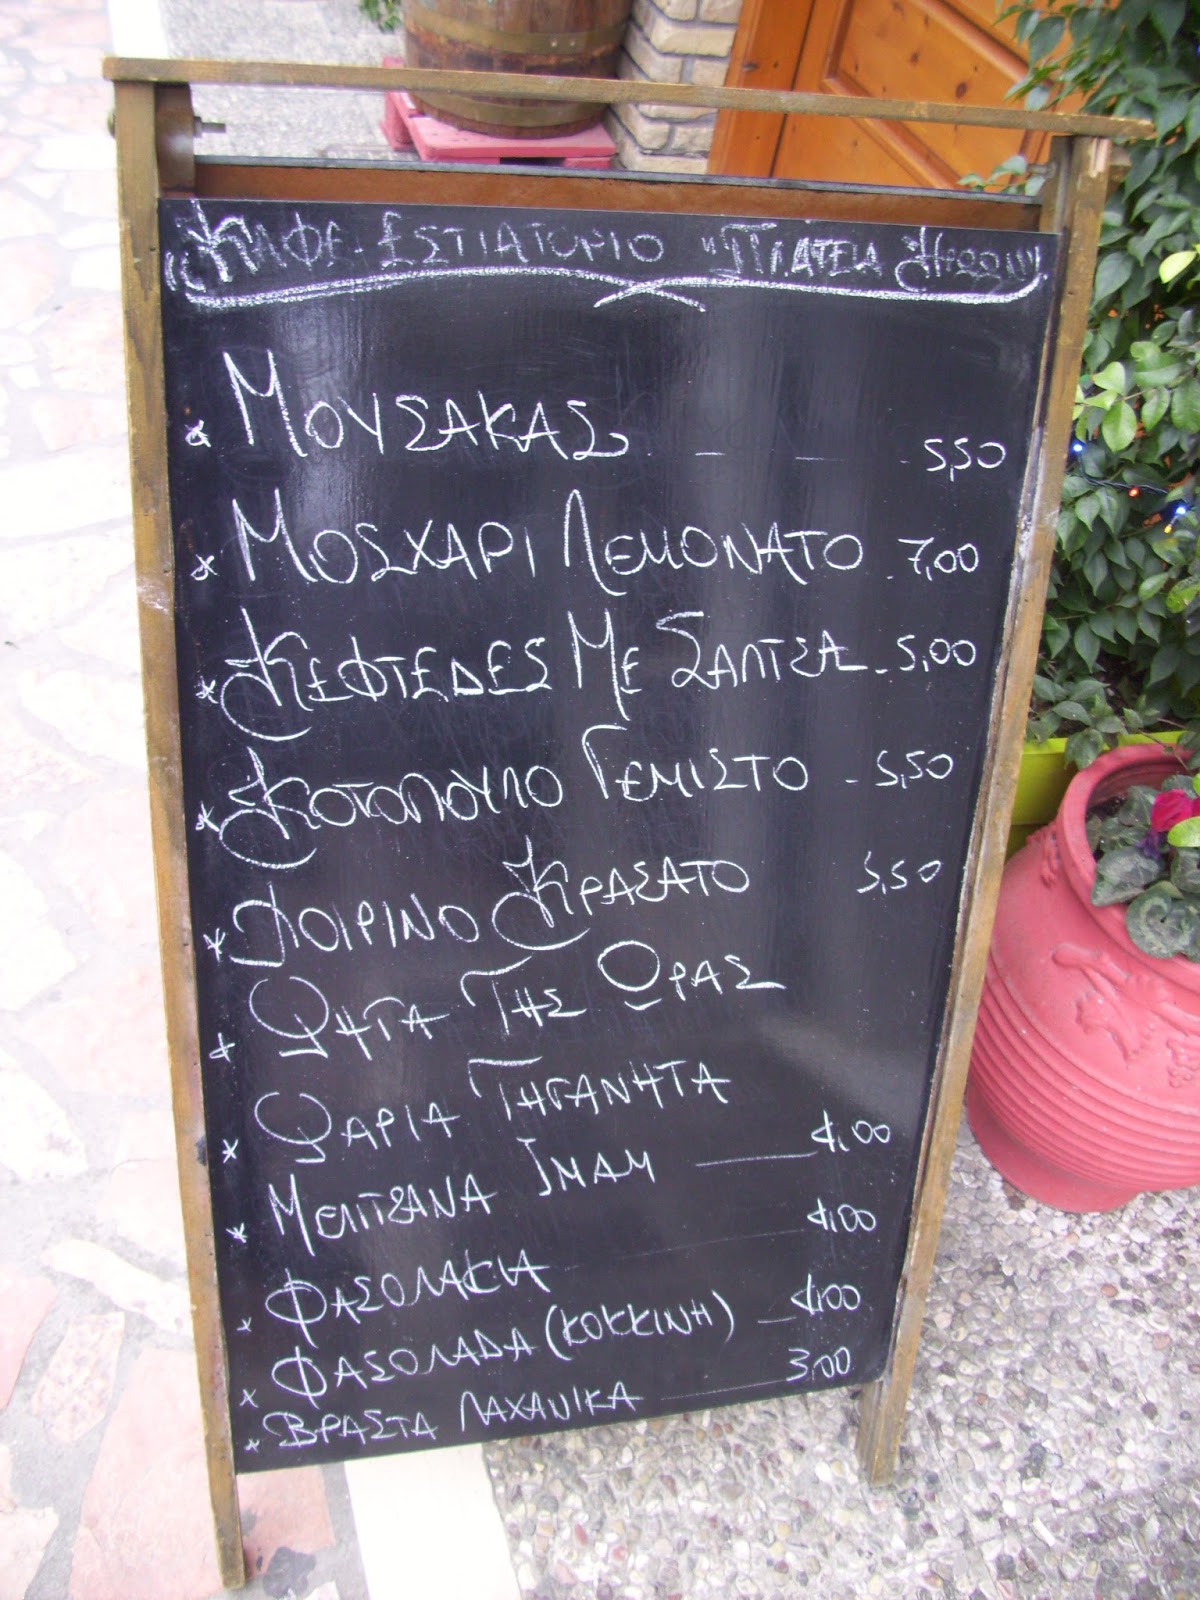 ΚΑΦΕ-ΕΣΤΙΑΤΟΡΙΟ "ΠΛΑΤΕΙΑ
* ΜΟΥΣΑΚΑΣ - - - 5,50
* ΜΟΣΧΑΡΙ ΛΕΜΟΝΑΤΟ - 7,00
* ΚΕΦΤΕΔΕΣ ΜΕ ΣΑΛΤΣΑ - 5,00
* ΚΟΤΟΠΟΥΛΟ ΓΕΜΙΣΤΟ - 5,50
* ΧΟΙΡΙΝΟ ΚΡΑΣΑΤΟ 5,50
* ΨΗΤΑ ΤΗΣ ΩΡΑΣ
* ΨΑΡΙΑ ΤΗΓΑΝΗΤΑ
* ΜΕΛΙΤΖΑΝΑ ΙΜΑΜ - 4,00
* ΦΑΣΟΛΑΚΙΑ 4,00
* ΦΑΣΟΛΑΔΑ (ΚΟΚΚΙΝΗ) - 4,00
* ΒΡΑΣΤΑ ΛΑΧΑΝΙΚΑ - 3,00